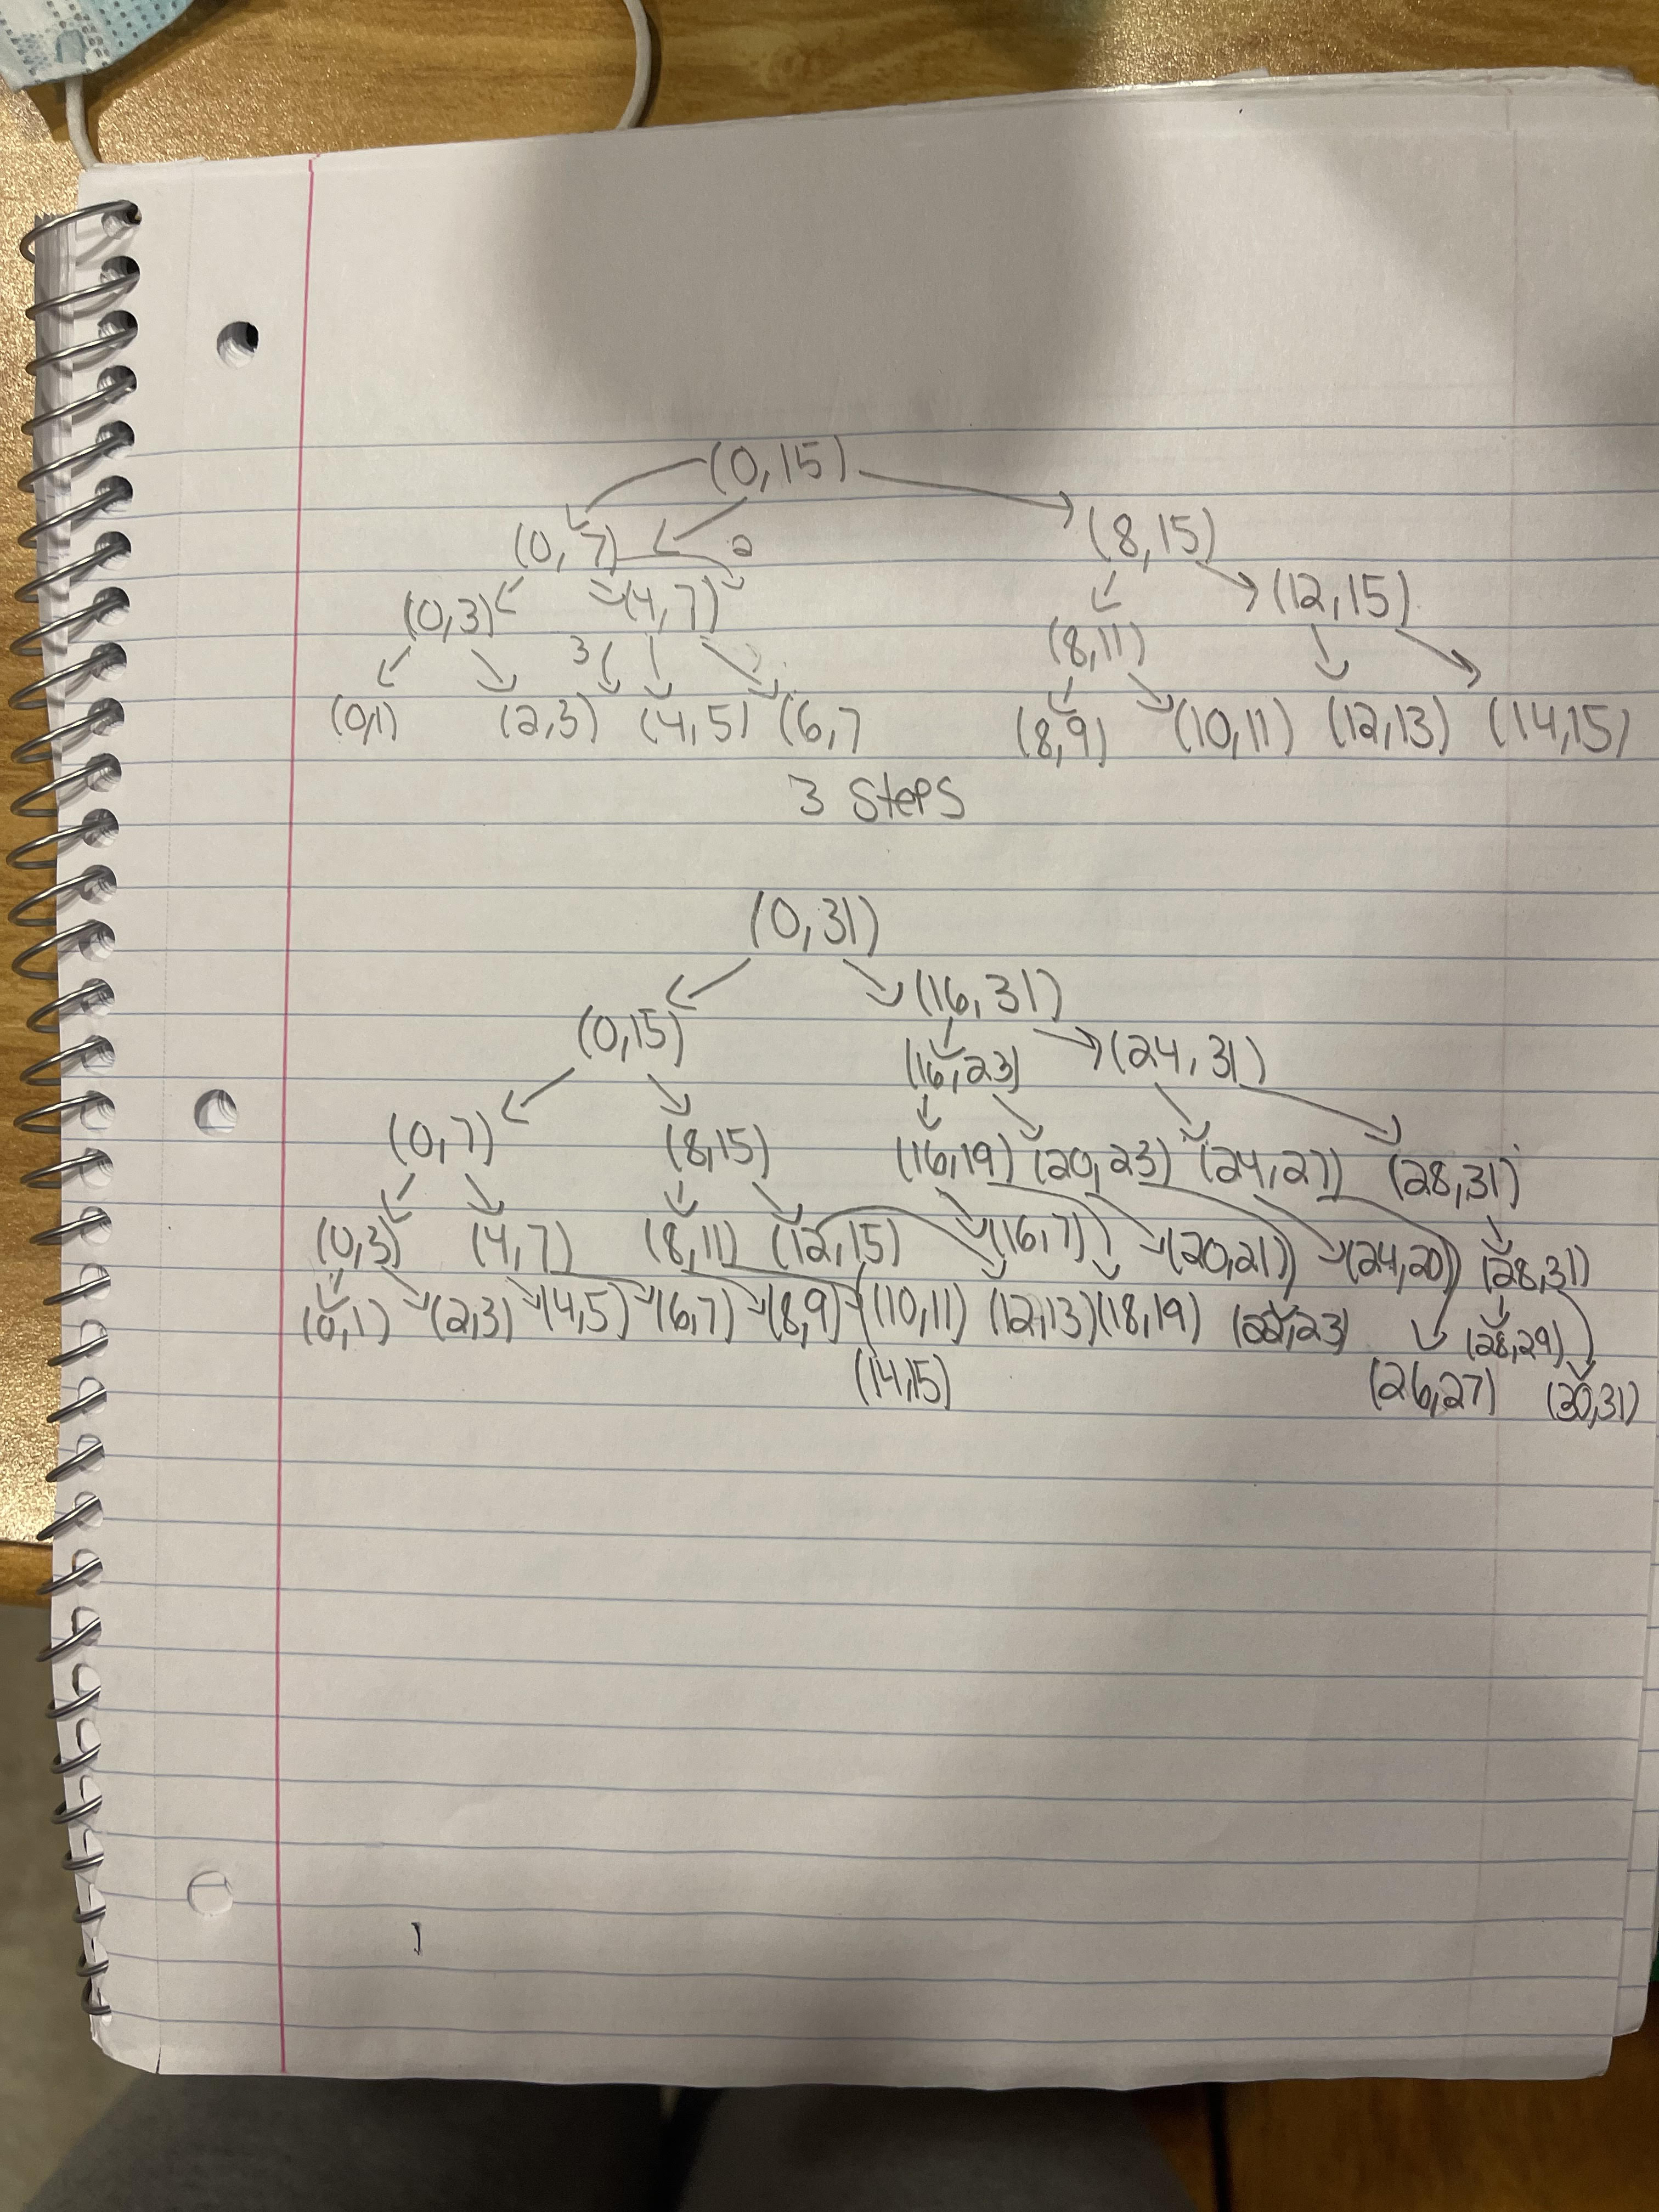 (0,15)
(0,7) 2 (8,15)
(0,3) (4,7) (12,15)
3 (8,11)
(0,1) (2,3) (4,5) (6,7 (8,9) (10,11) (12,13) (14,15)
3 Steps
(0,31)
(0,15) (16,31)
(16,23) (24,31)
(0,7) (8,15) (16,19) (20,23) (24,27) (28,31)
(0,3) (4,7) (8,11) (12,15) (16,7) (20,21) (24,20) (28,31)
(0,1) (2,3) (4,5) (6,7) (8,9) (10,11) (12,13) (18,19) (22,23) (28,29)
(14,15) (26,27) (30,31)